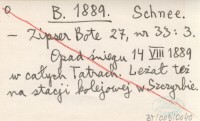 B. 1889. Schnee.
- Zipser Bote 27, nr 33: 3.
Opad śniegu 14 VIII 1889
w całych Tatrach. Leżał też
na stacji kolejowej w Szczyrbie.